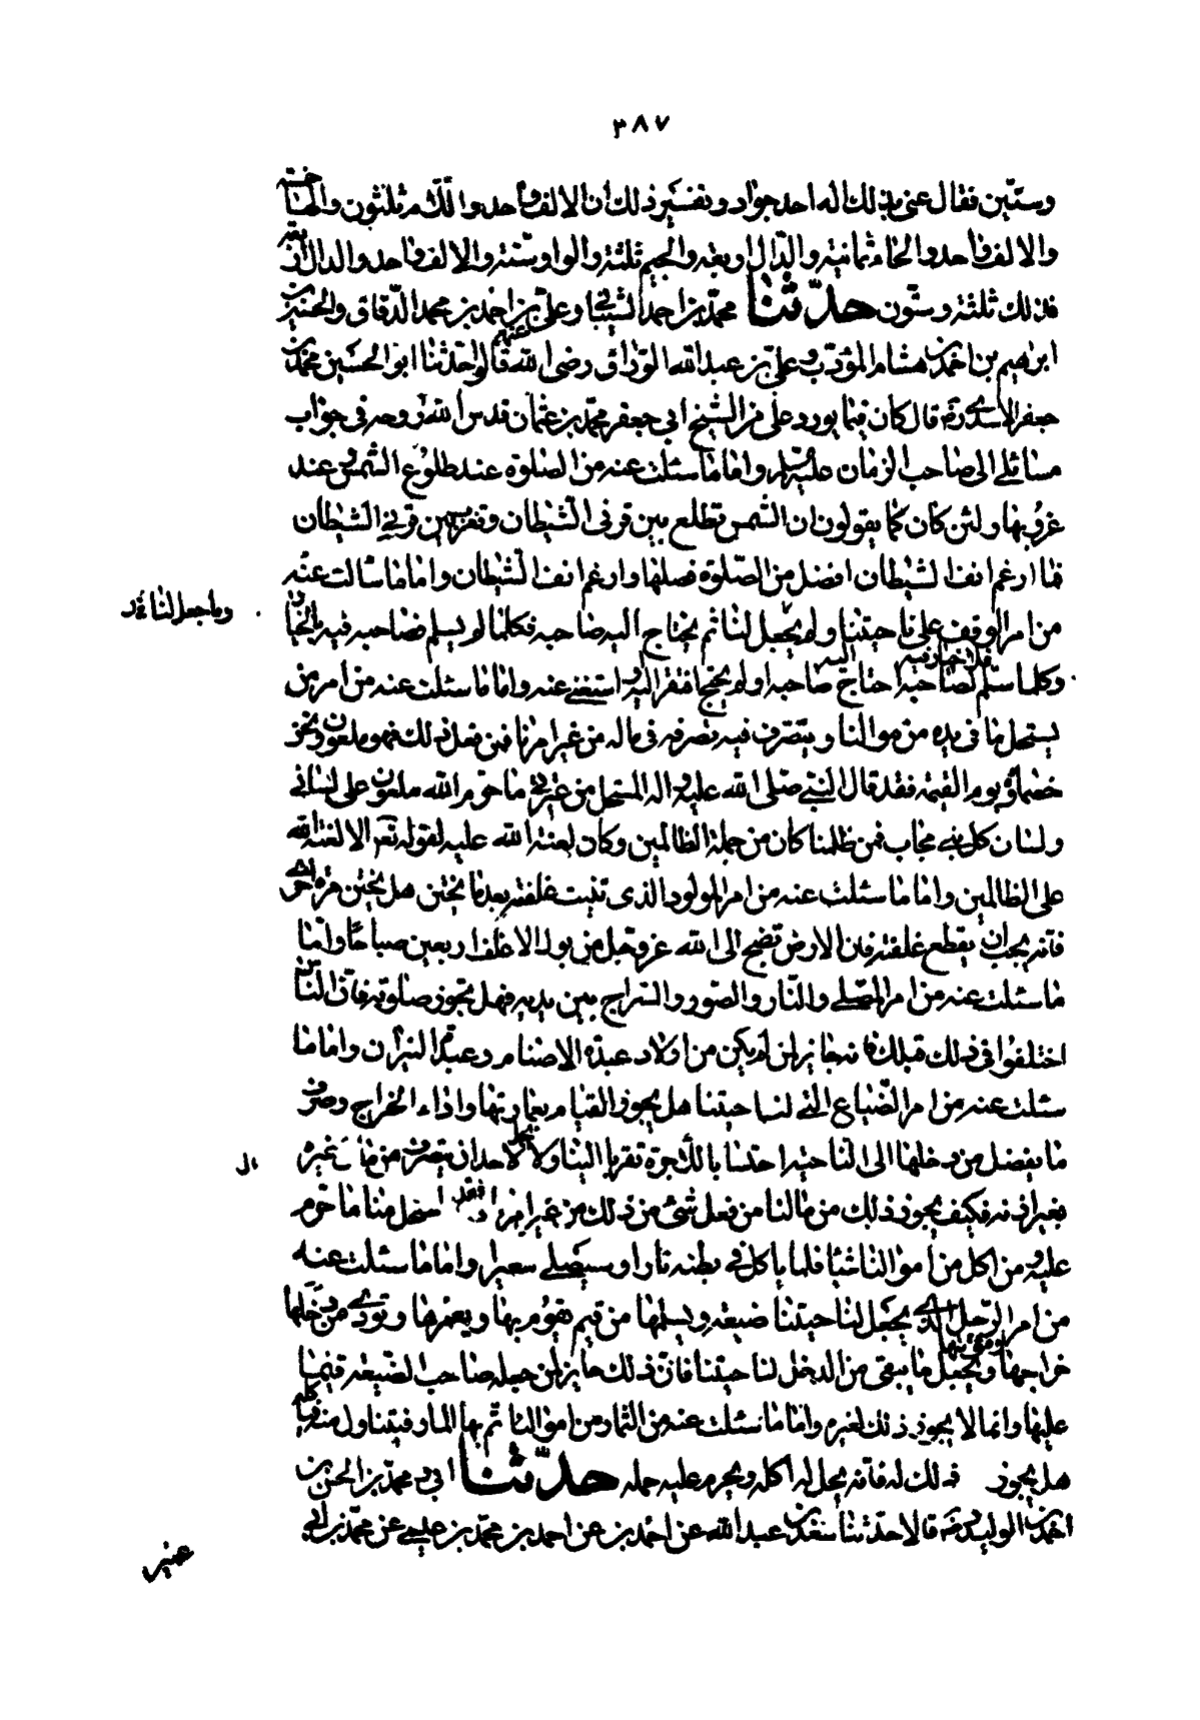 ٣٨٧
وستّين فقال عنى بذلك اله احد جواد وتفسير ذلك ان الالف واحد واللام ثلثون والهاء خمسة
والالف واحد والحاء ثمانية والدّال اربعة والجيم ثلثة والواو ستة والالف واحد والدال اربعة
فذلك ثلثة وستّون حدّثنا محمّد بن احمد الشيباني وعليّ بن احمد بن محمد الدّقاق والحسين بن
ابرهيم بن احمد بن هشام المؤدّب وعليّ بن عبد الله الورّاق رضى الله عنهم قالوا حدّثنا ابو الحسين محمّد بن
جعفر الاسدى ره قال كان فيما يورد علىّ من الشيخ ابى جعفر محمّد بن عثمان قدس الله روحه فى جواب
مسائلى الى صاحب الزمان عليه السلم واما ما سئلت عنه من الصلوة عند طلوع الشمس وعند
غروبها ولئن كان كما يقولون ان الشمس تطلع بين قرنى الشيطان وتغرب بين قرنى الشيطان
فما ارغم انف الشيطان افضل من الصّلوة فصلها وارغم انف الشيطان واما ما سئالت عنه
من امر الوقف على ناحيتنا ولم يجعل لنا ثم يحتاج اليه صاحبه فكلما لم يسلم فصاحبه فيه بالخيار
وما جعل لنا
وكلما سلّم فلا خيار فيه لصاحبه احتاج اليه صاحبه او لم يحتج افتقر اليه او استغنى عنه واما ما سئلت عنه من امر من
يستحل ما فى يده من موالنا ويتصرف فيه تصرفه فى ماله من غير امرنا فمن فعل ذلك فهو ملعون ونحن
خصماؤه يوم القيمة فقد قال النبى صلى الله عليه واله المستحل من عترتى ما حرم الله ملعون على لسانى
ولسان كل نبى مجاب فمن ظلمنا كان من جملة الظالمين وكان لعنة الله عليه لقوله تعم الا لعنة الله
على الظالمين واما ما سئلت عنه من امر المولود الذى تنبت غلفته بعد ما يختن هل يختن مرة اخرى
فانه يجب ان يقطع غلفته فان الارض تضج الى الله عز وجل من بول الاغلف اربعين صباحا واما
ما سئلت عنه من امر المصلى والنّار والصور والسّراج بين يديه فهل يجوز صلوته فان الناس
اختلفوا فى ذلك قبلك فانه جايز لمن لم يكن من اولاد عبدة الاصنام وعبدة النيران واما ما
سئلت عنه من امر الضّياع التى لناحيتنا هل يجوز القيام بعمارتها واداء الخراج وصرف
ما يفضل من دخلها الى الناحية احتسابا للاجرة تقربا الينا ولا يحل لاحد ان يتصرف من مال غيره
ال
بغير اذنه فكيف يجوز ذلك من مالنا من فعل شئ من ذلك من غير امرنا فقد استحل منا ما حرم
عليه ومن اكل من اموالنا شيئا فانما ياكل فى بطنه نارا وسيصلى سعيرا واما ما سئلت عنه
من امر الرّجل الذى يجعل لناحيتنا ضيعة ويسلمها من قيم يقوم بها ويعمرها ويؤدى من دخلها
خراجها ومؤنتها ويجعل ما يبقى من الدخل لناحيتنا فانّ ذلك جايز لمن جعله صاحب الضّيعة قيما
عليها وانما لا يجوز ذلك لغيره واما ما سئلت عنه من الثمار من اموالنا تمّ بها المار فيتناول منه وياكله
هل يجوز ذلك له فانه يحل له اكله ويحرم عليه حمله حدّثنا ابى ومحمّد بن الحسن بن
احمد بن الوليد ره قالا حدّثنا سعد بن عبد الله عن احمد بن عن احمد بن محمّد بن عيسى عن محمّد بن ابى
عمير